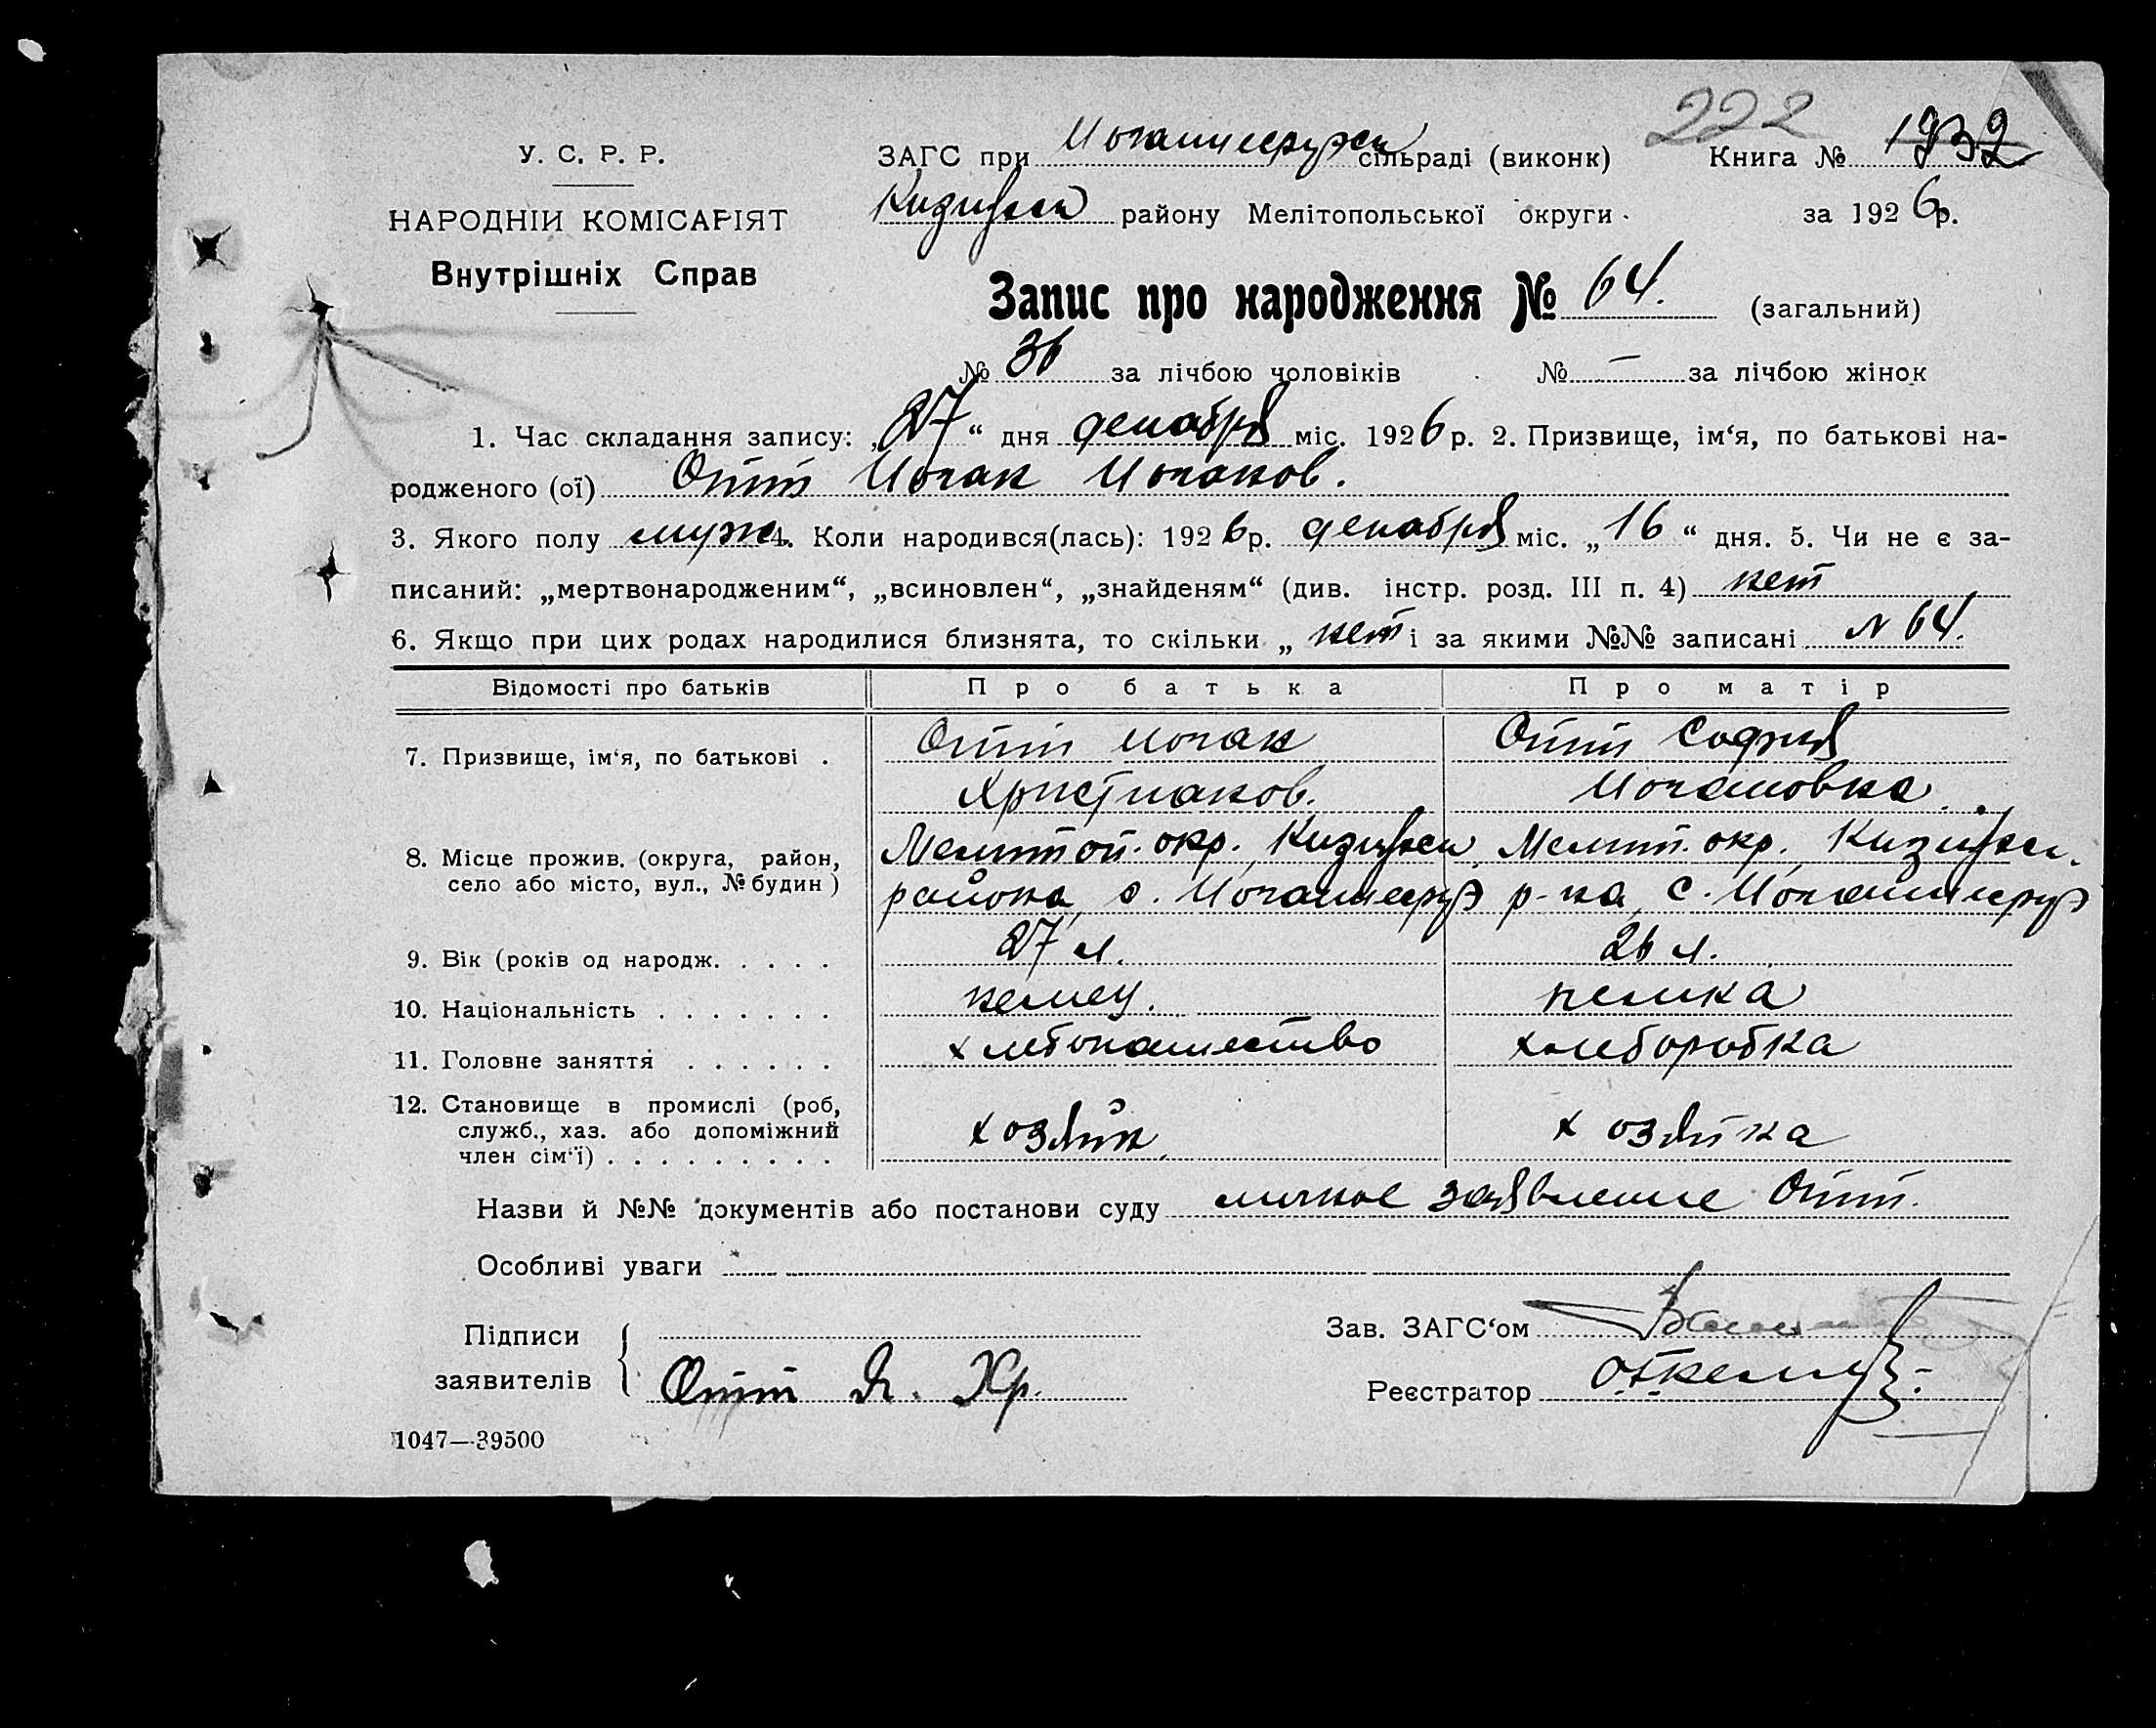 222
У. С. Р. Р.
ЗАГС при Иоганнесрузск сільраді (виконк) Книга № 1932
НАРОДНІИ КОМІСАРІЯТ
Внутрішніх Справ
району Мелітопольської округи. за 1926 р.
Запис про народження № 64. (загальний)
№ 36 за лічбою чоловіків № — за лічбою жінок
1. Час складання запису: „27“ дня декабря міс. 1926 р. 2. Призвище, ім‘я, по батькові на-
родженого (ої) Отт Иоган Иоганов.
3. Якого полу муж. 4. Коли народився(лась): 1926 р. декабря міс. „16“ дня. 5. Чи не є за-
писаний: „мертвонародженим“, „всиновлен“, „знайденям“ (див. інстр. розд. III п. 4) нет
6. Якщо при цих родах народилися близнята, то скільки „ нет і за якими №№ записані N 64.
Відомості про батьків Про батька Про матір
7. Призвище, ім‘я, по батькові . Отт Иоган Отт София
Христианов. Иогановна.
8. Місце прожив. (округа, район, Мелитоп. окр. Мелит. окр.
село або місто, вул., № будин) района, с. Иоганнесруэ р-на, с. Иоганнесруэ
9. Вік (років од народж. . . . . 27 л. 26 л.
10. Національність . . . . . . . немец. немка
11. Головне заняття . . . . . . хлебопашество хлеборобка
12. Становище в промислі (роб,
служб., хаз. або допоміжний хозяин хозяйка
член сім‘ї) . . . . . . . . .
Назви й №№ документів або постанови суду личное заявление Отт.
Особливі уваги
Підписи Зав. ЗАГС‘ом
заявителів Отт И. Хр. Реєстратор
1047—39500